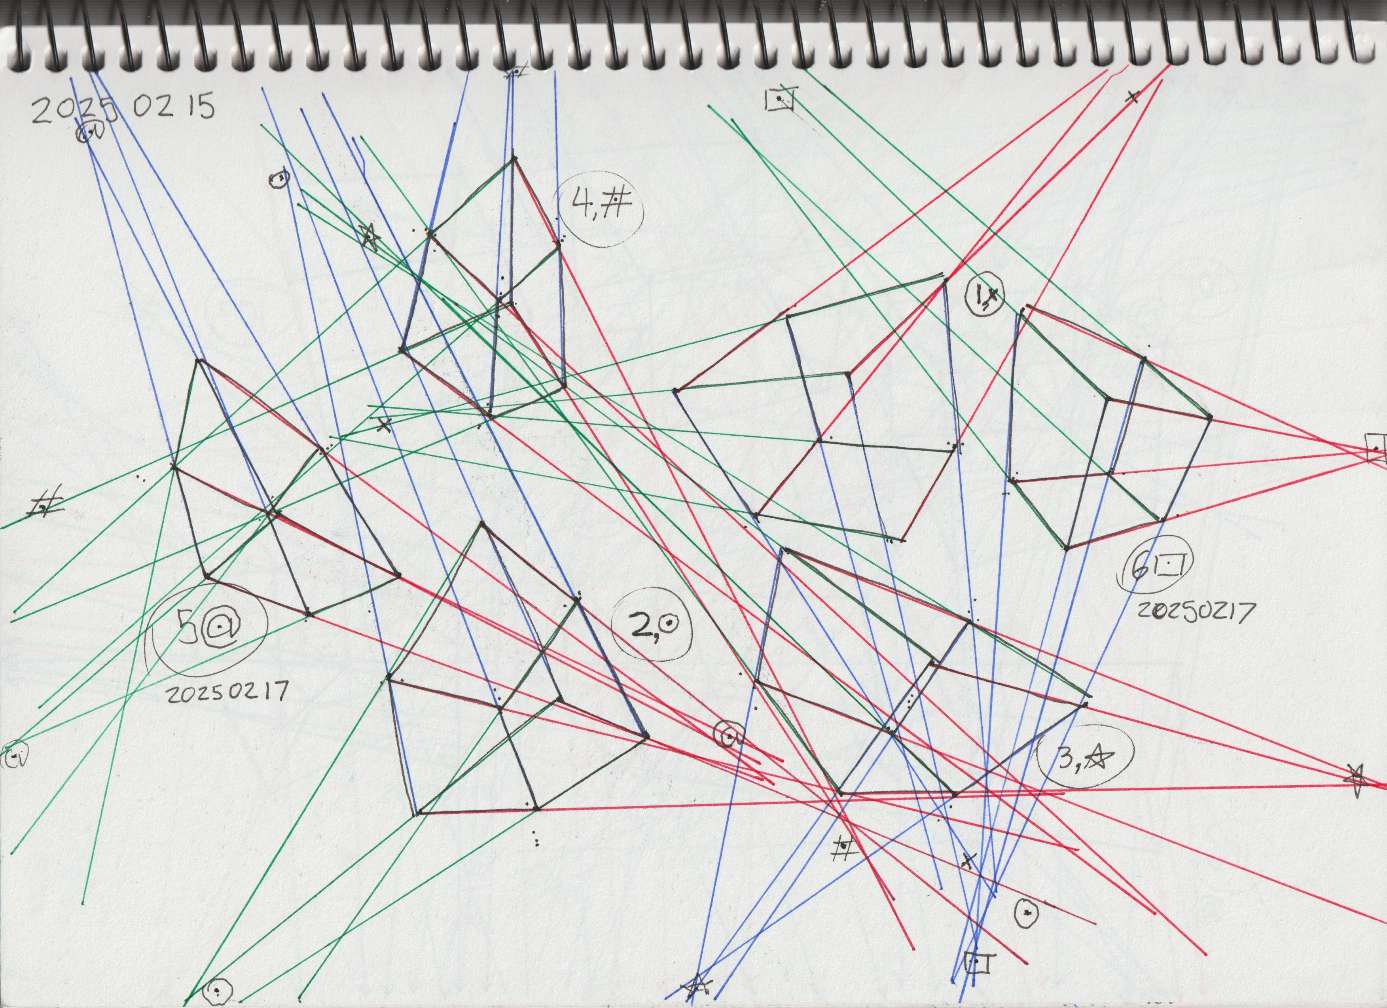 2025 02 15
@
4,#
1,x
#
6
20250217
5@
2,⊙
20250217
@
@
3,☆
#